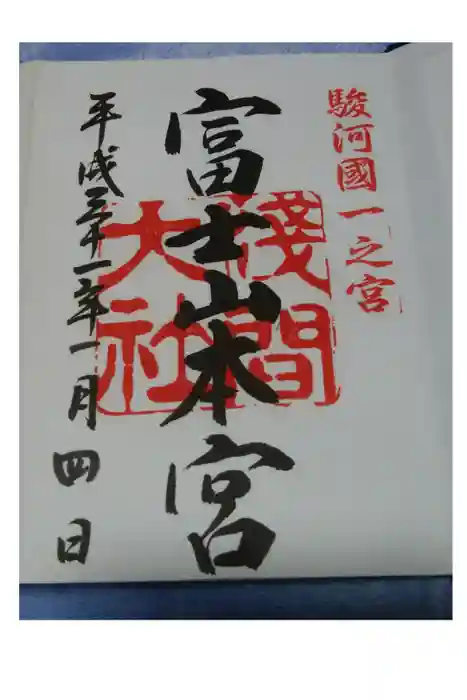 駿河國一之宮
富士山本宮
淺間大社
平成三十一年一月四日